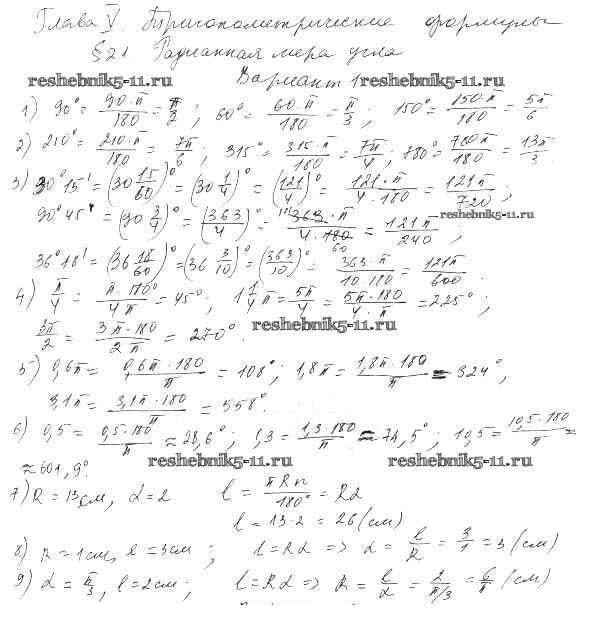 Глава V. Тригонометрические формулы
§21 Радианная мера угла
reshebnik5-11.ru Вариант 1 reshebnik5-11.ru
1) 90° = 90·π/180 = π/2; 60° = 60·π/180 = π/3; 150° = 150·π/180 = 5π/6
2) 210° = 210·π/180 = 7π/6; 315° = 315·π/180 = 7π/4; 780° = 780π/180 = 13π/3.
3) 30°15' = (30 15/60)° = (30 1/4)° = (121/4)° = 121·π/4·180 = 121π/720;
90°45' = (90 3/4)° = (363/4)° = 121 363·π/4·180 60 = 121π/240; reshebnik5-11.ru
36°18' = (36 18/60)° = (36 3/10)° = (363/10)° = 363·π/10·180 = 121π/600.
4) π/4 = π·180°/4π = 45°; 1 1/4 π = 5π/4 = 5π·180/4·π = 225°;
3π/2 = 3π·180/2π = 270°. reshebnik5-11.ru
5) 0,6π = 0,6π·180/π = 108°; 1,8π = 1,8π·180/π = 324°,
3,1π = 3,1π·180/π = 558°.
6) 0,5 = 0,5·180°/π ≈ 28,6°; 1,3 = 1,3·180/π ≈ 74,5°; 10,5 = 10,5·180/π ≈
≈ 601,9° reshebnik5-11.ru reshebnik5-11.ru
7) R = 13см, α = 2 l = πRn/180° = Rα
l = 13·2 = 26 (см)
8) R = 1см, l = 3см; l = Rα => α = l/R = 3/1 = 3 (см)
9) α = π/3, l = 2см; l = Rα => R = l/α = 2/π/3 = 6/π (см)